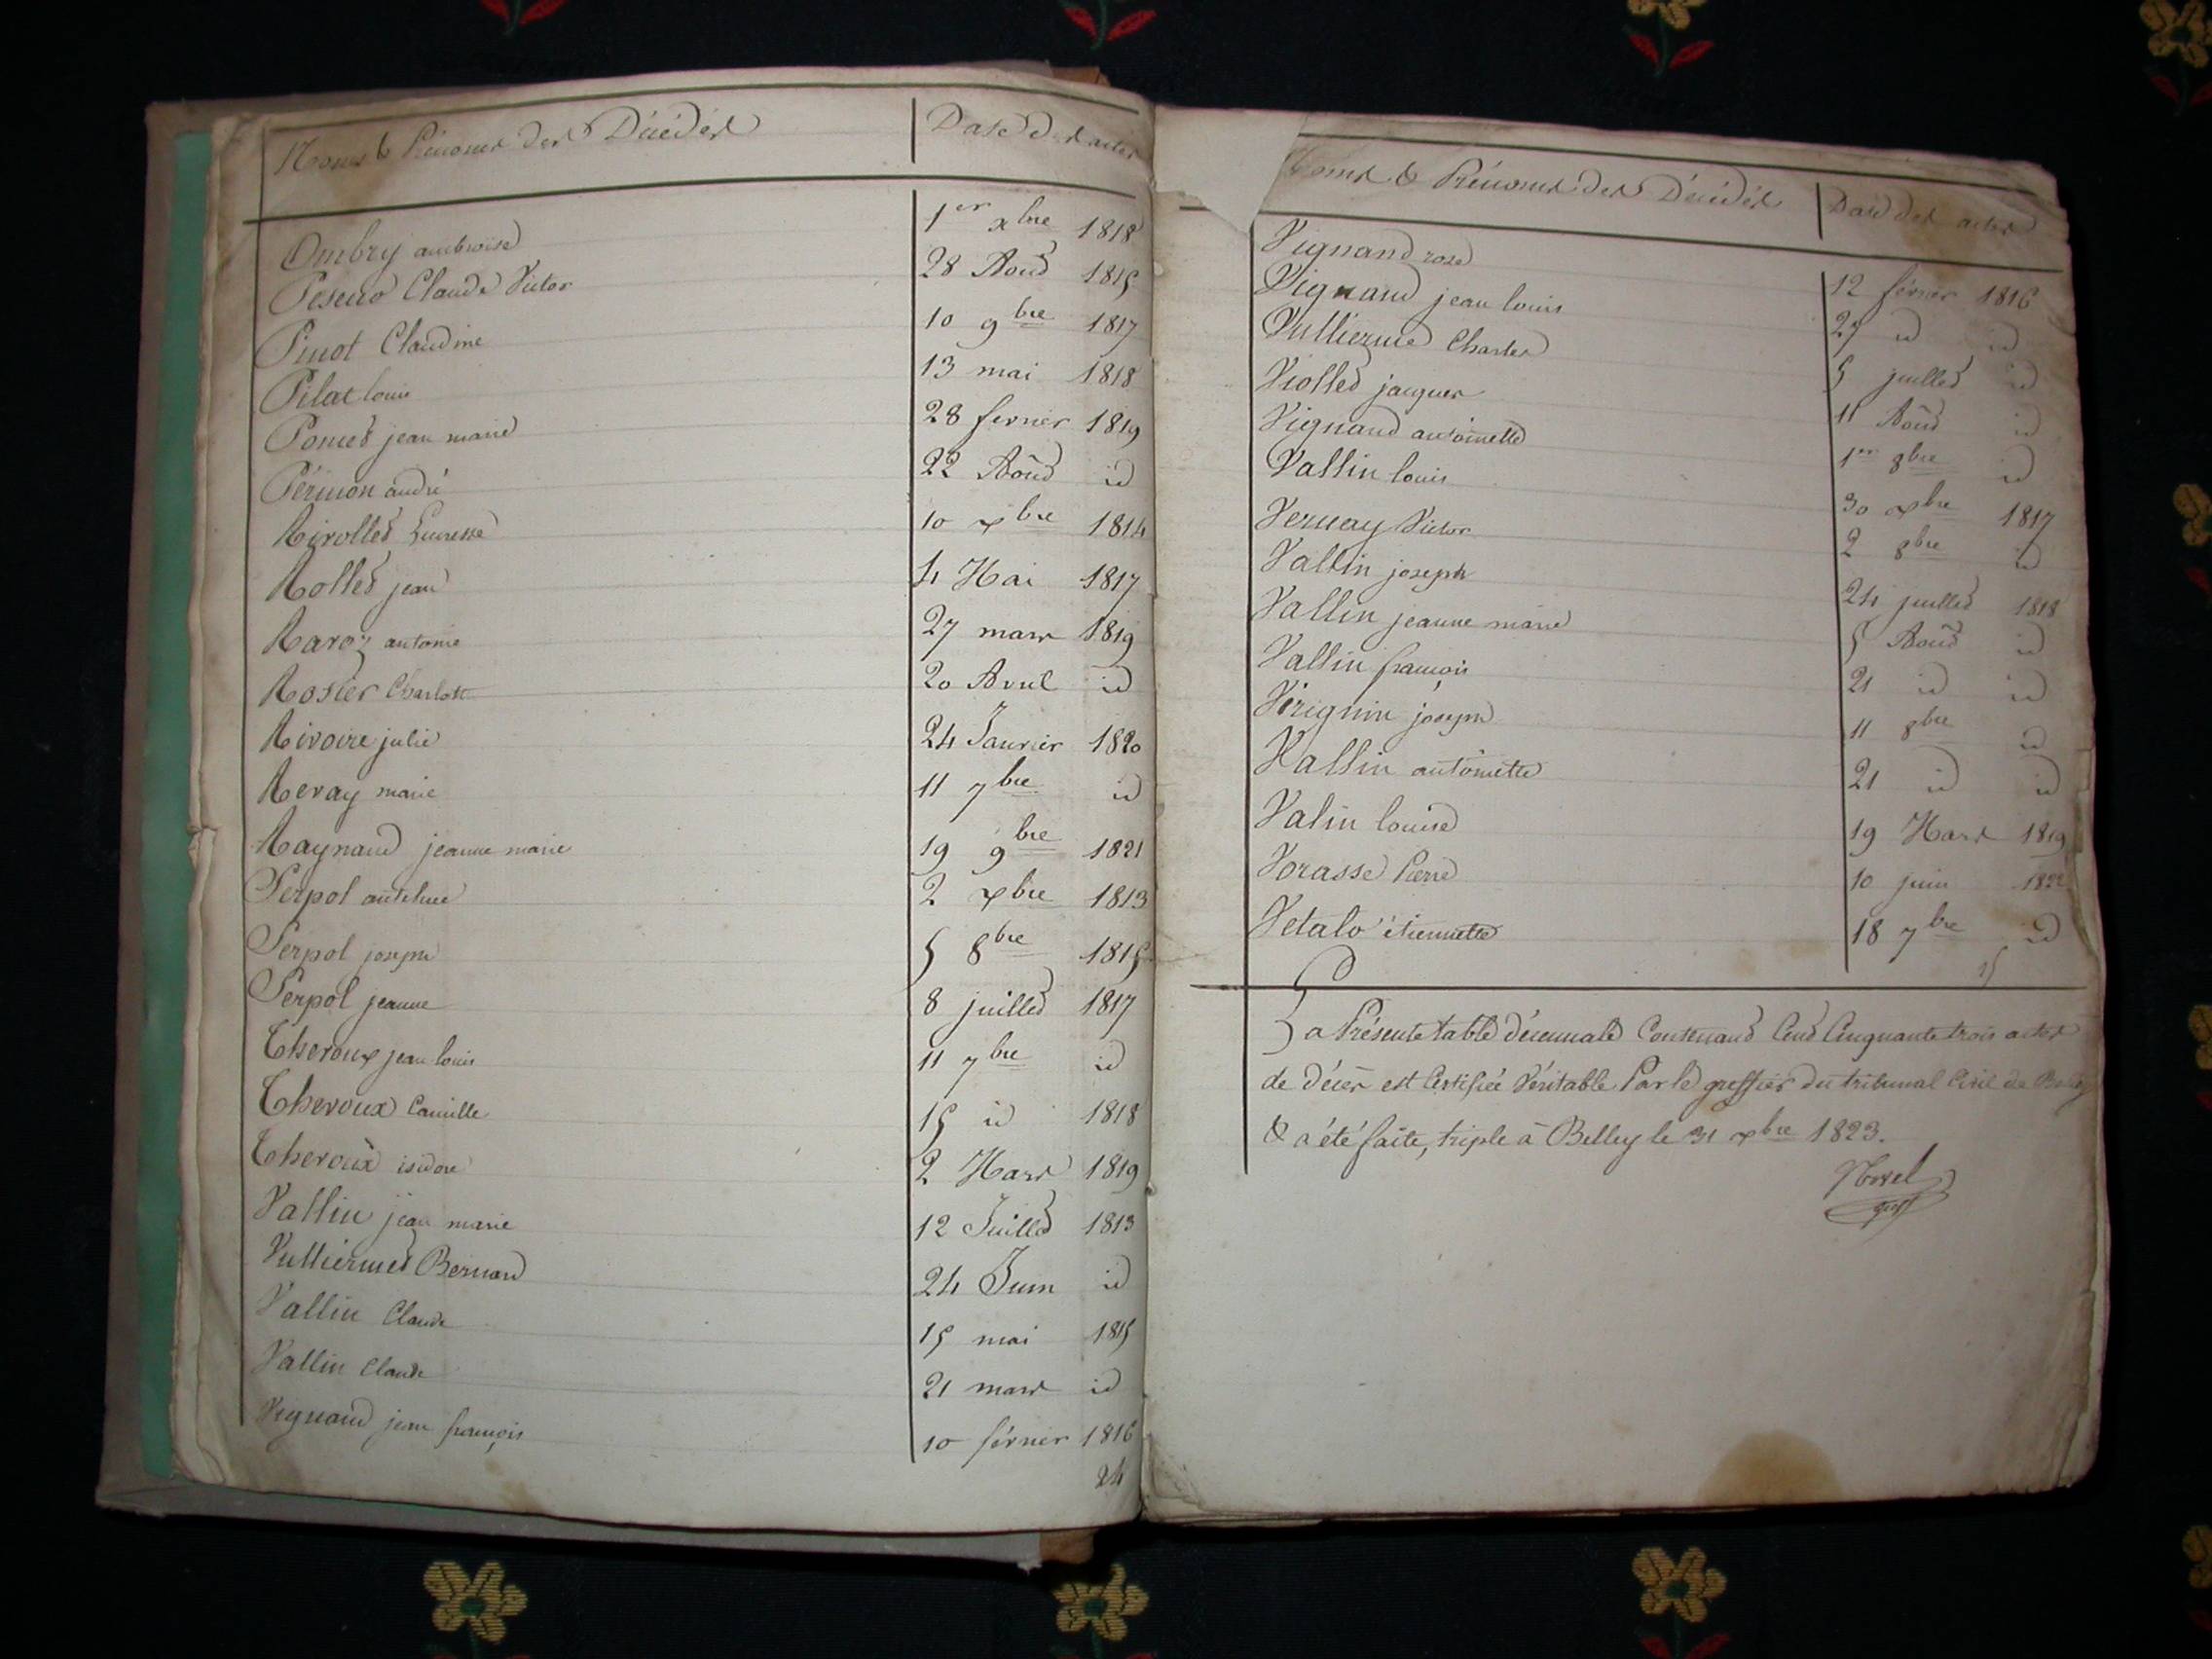 Noms & Prénoms des Décédés Date des actes
Ombry ambroise 1er xbre 1818
Claude Victor 28 Août 1815
Pinot Claudine 10 9bre 1817
Pilat louis 13 mai 1818
Poncet jean marie 28 fevrier 1819
andré 22 Août id
Rivollet 10 xbre 1814
Rollet jean 4 Mai 1817
Ravoz antoine 27 mars 1819
Rosier Charlotte 20 Avril id
Rivoire julie 24 Janvier 1820
Revay marie 11 7bre id
Raynaud jeanne marie 19 9bre 1821
Serpol antelme 2 xbre 1813
Serpol joseph 5 8bre 1815
Serpol jeanne 8 juillet 1817
Theroux jean louis 11 7bre id
Theroux Camille 15 id 1818
Theroux isidore 2 Mars 1819
Vallin jean marie 12 Juillet 1813
Vulliermet Bernard 24 Juin id
Vallin Claude 15 mai 1815
Vallin Claude 21 mars id
Vignand jean françois 10 février 1816
24
Noms & Prénoms des Décédés Date des actes
Vignand rose 12 février 1816
Vignand jean louis 27 id id
Vullierme Charles 5 juillet id
Viollet jacques 11 Août id
Vignand antoinette 1er 8bre id
Vallin louis 30 xbre 1817
Vernay Victor 2 8bre id
Vallin joseph 24 juillet 1818
Vallin jeanne marie 5 Août id
Vallin françois 21 id id
Virignin joseph 11 8bre id
Vallin antoinette 21 id id
Valin louise 19 Mars 1819
Vorasse Pierre 10 juin 1822
Vetalo étiennette 18 7bre id
15
La Présente table décennale Contenant Cent Cinquante trois actes
de décès est Certifiée Véritable Par le greffier du tribunal Civil de Belley
& a été faite, triple à Belley le 31 xbre 1823.